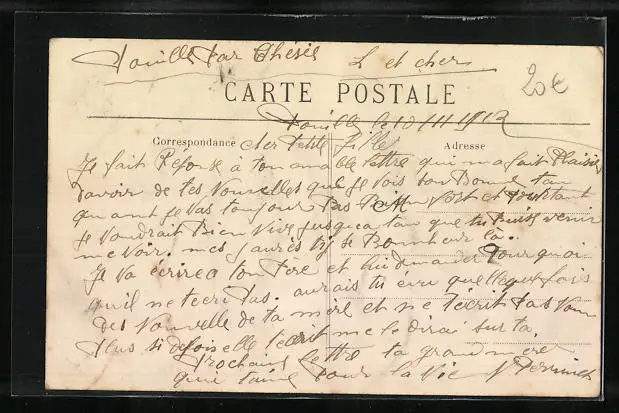 par Thésée L et cher
20€
CARTE POSTALE
le 10/11 1912
Correspondance Adresse
cher petite fille
Je fait Réponse à ton amable lettre qui m a fait Plaisir
davoir de tes Nouvelles que Je vois son Bonne
quant Je vas toujour Pas Bien fort et Pourtant
Je voudrait Bien vivre jusqu a tan que tu Puise venir
me voir. mes jaurès Bonheur la.
Je va écrire a ton Père et lui demander Pourquoi
qu il ne tecri Pas. aurais tu eu quelleque fois
des Nouvelle de ta mère et ne tecrit Pas Non
Plus si defois elle tecrit me le dira sur ta
Prochaine lettre ta grand mère
qui t aime Pour la Vie